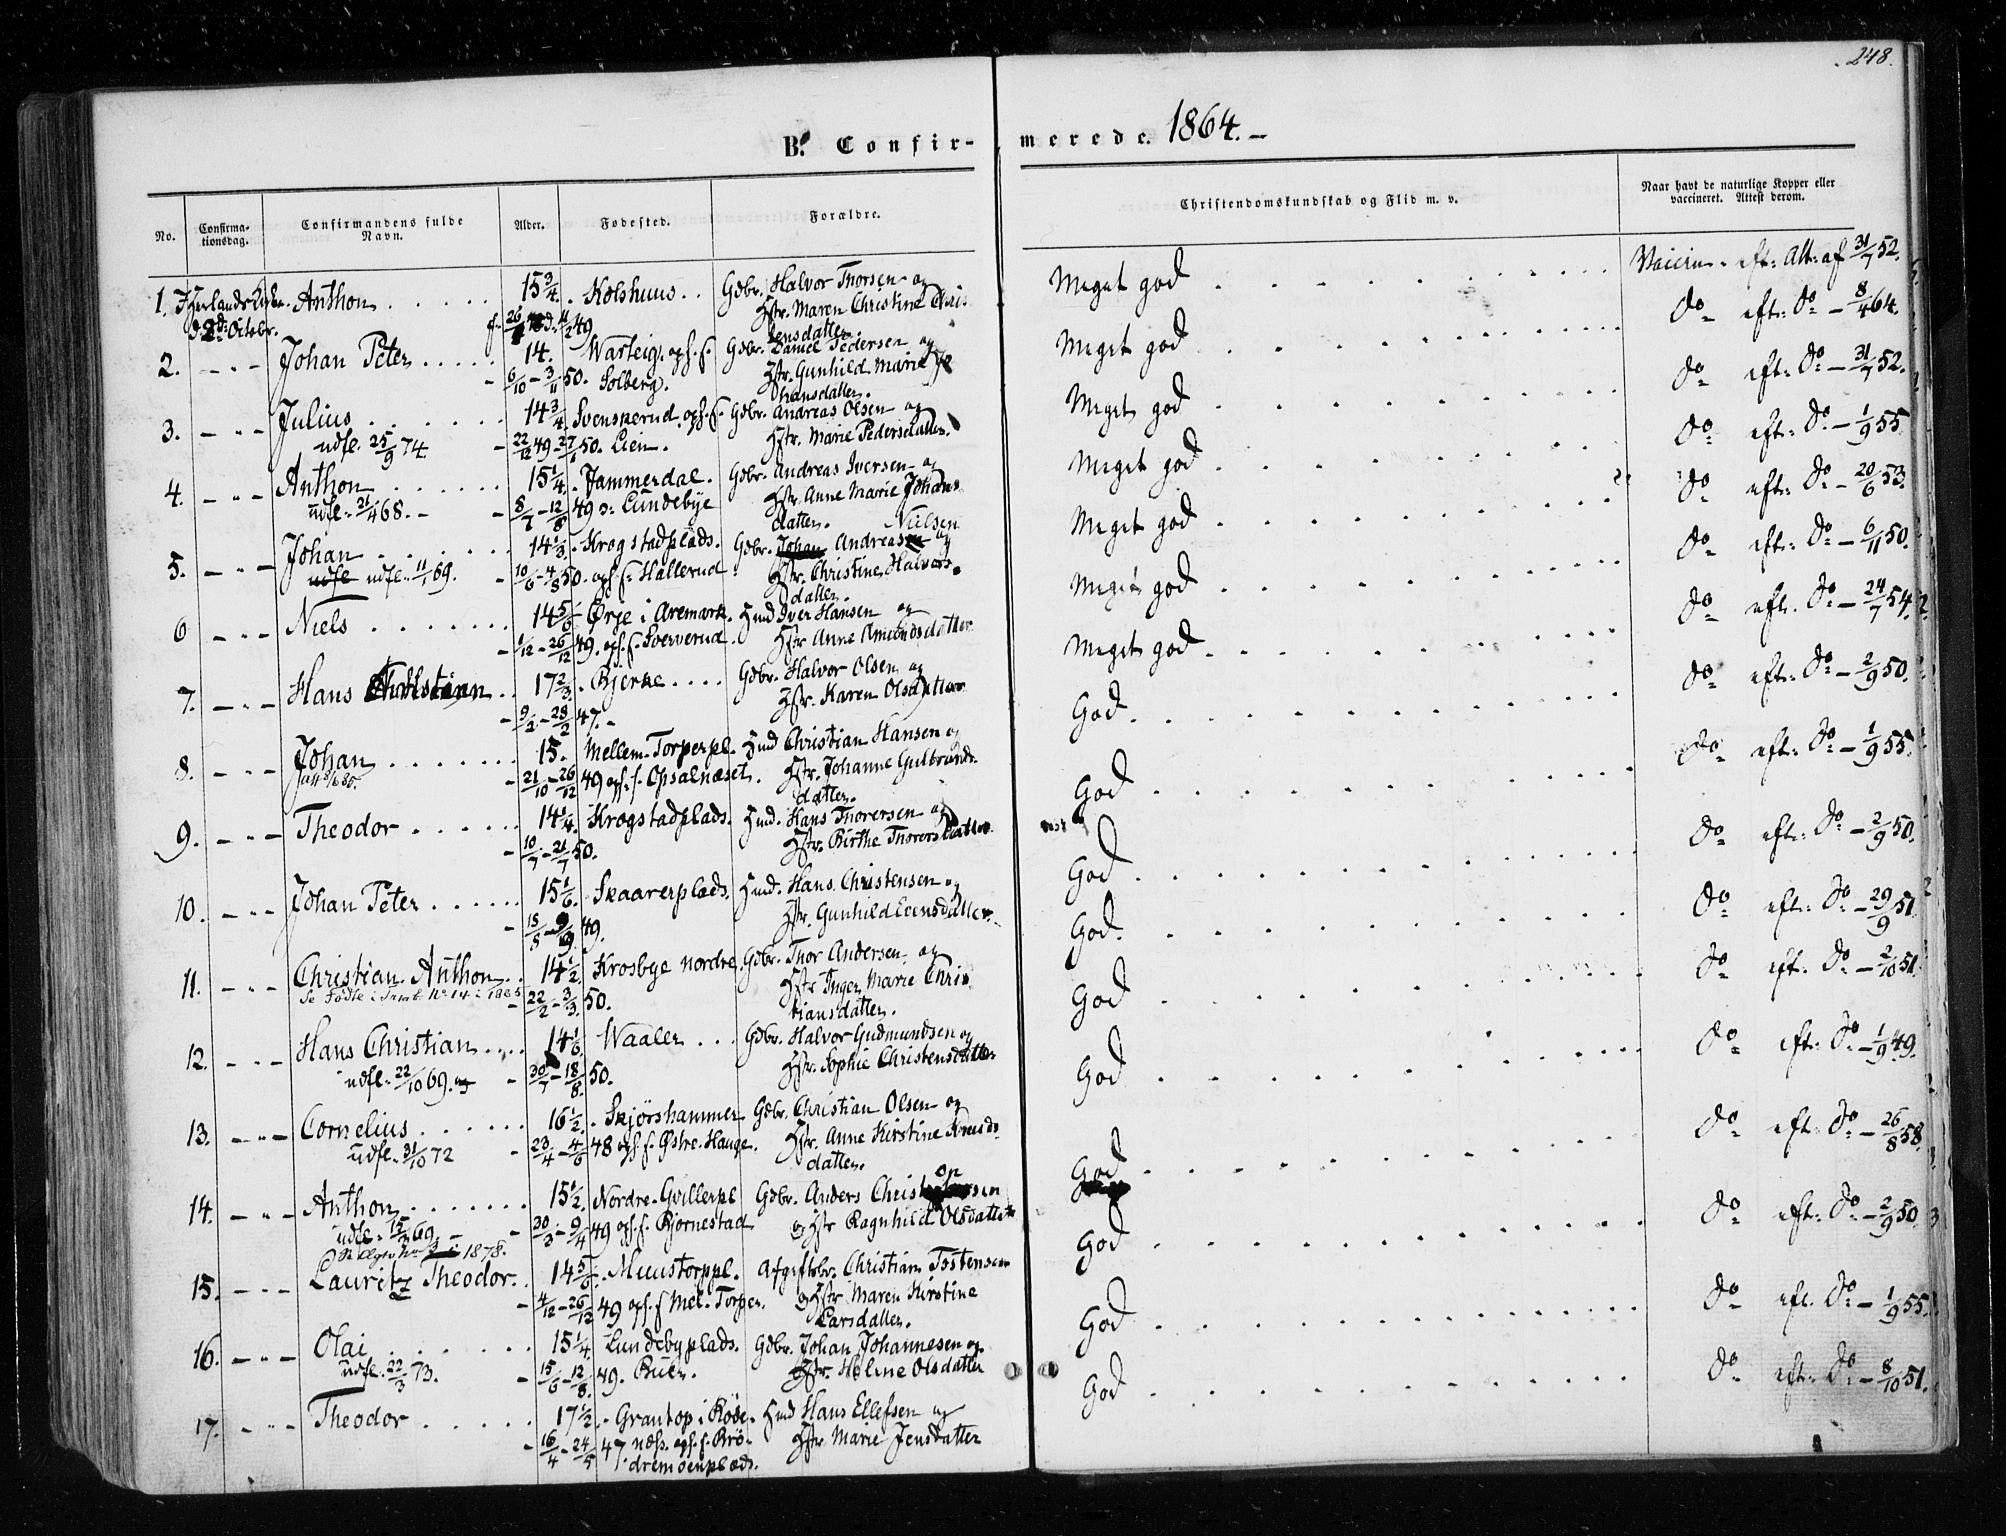 248.
B. Confir-merede. 1864.-
No.
Confirma-
tionsdag.
Confirmandens fulde
Navn.
Alder.
Fødested.
Forældre.
Christendomskundskab og Flid m. v.
Naar havt de naturlige Kopper eller
vaccineret. Attest derom.
1. Anthon 15 3/4. Kolshuus. Gdbr. Halvor Thorsen og Meget god Vaccin. eft: Att: af 31/7 52.
d. 2d Octobr. 49 Hstr. Maren Christine Chris
tensdatter.
2. - " - Johan Peter 14. Warteig. ops. f. Gdbr. Daniel Pedersen og Meget god do eft: do - 8/4 64.
6/10 - 3/11 50. Solberg. Hstr. Gunhild Marie
hansdatter.
3. - " - Julius 14 3/4 Svenskerud. ops. f. Gdbr. Andreas Olsen og Meget god do eft: do - 31/7 52.
udfl. 25/9 74. 22/12 49 - 27/1 50. Lien. Hstr. Marie Pedersdatter.
4. - " - Anthon 15 1/4. Jammerdal. Gdbr. Andreas Iversen og Meget god do eft: do - 1/9 55
udfl. 21/4 68. - 8/7 - 12/8 49 o: Lundebye Hstr. Anne Marie Johans
datter.
5. - " - Johan 14 1/3. Krogstadplads. Gdbr. Johan Andreas Nielsen og Meget god do eft: do - 20/6 53.
udfl udfl. 11/1 69. 10/6 - 4/8 50. ops. f: Hallerud Hstr. Christine Halvors
datter.
6 - " - Niels 14 5/6 Ørje i Aremark. Hmd Iver Hansen og Meget god do eft: do - 6/11 50.
1/12 - 26/12 49. ops. f. Sververud Hstr Anne Amundsdatter
7. - " - Hans Christian 17 2/3. Bjerke Gdbr. Halvor Olsen og Meget god do eft. do - 24/7 54.
9/2 - 28/2 47. Hstr. Karen Olsdatter
8. - " - Johan 15. Mellem-Torperpl. Hmd Christian Hansen og God do eft: do - 2/9 50.
21/10 - 26/12 49 ops. f. Opsalnæset. Hstr. Johanne Gulbrands
datter.
9. - " - Theodor 14 1/4. Krogstadplads. Hmd. Hans Thorersen og God do eft: do - 1/9 55.
10/7 - 21/7 50. Hstr. Birthe Thorersdatter
10. - " - Johan Peter 15 1/6. Skaarerplads. Hmd. Hans Christensen og God do eft: do - 2/9 50.
15/8 - 9/9 49. Hstr. Gunhild Evensdatter
11. - " - Christian Anthon 14 1/2. Krosbye nordre. Gdbr. Thor Andersen og God do eft: do - 29/9 51
22/2 - 3/3 50. Hstr Inger Marie Chris
tiansdatter.
12. - " - Hans Christian 14 1/6. Waaler Gdbr. Halvor Gudmundsen og God do eft: do - 2/10 51.
udfl. 22/10 69. 30/7 - 18/8. 50. Hstr. Sophie Christensdatter
13. - " - Cornelius 16 1/2. Skjørshammer Gdbr. Christian Olsen og God do eft: do - 1/9 49.
udfl. 31/10 72 23/4 - 4/6 48 ops. f. Østre-Hauge. Hstr. Anne Kirstine Knuds
datter.
14. - " - Anthon 15 1/2. Nordre-Gvillerpl Gdbr. Anders Christophersen God do eft: do - 26/8 58.
30/3 - 9/4 49 ops. f. Bjørnestad og Hstr Ragnhild Olsdatter
1878.
15. - " - Lauritz Theodor. 14 5/6. Muustorppl. Afgiftsbr. Christian Tostensen God do eft: do - 2/9 50
4/12 - 26/12 49 ops. f Mel. Torper. og Hstr Maren Kirstine
Larsdatter.
16. - " - Olai 15 1/4 Lundebyplads. Gdbr. Johan Johannesen og God do eft. do - 1/9 55.
udfl. 22/3 73. 15/6 - 12/8. 49. Hstr. Heline Olsdatter
17. - " - Theodor 17 1/2 Grantop i Hmd Hans Ellefsen og God do eft: do - 8/10 51.
16/4 - 24/5 47 ops. f. Brø- Hstr Marie Jensdatter
dremoenplads.